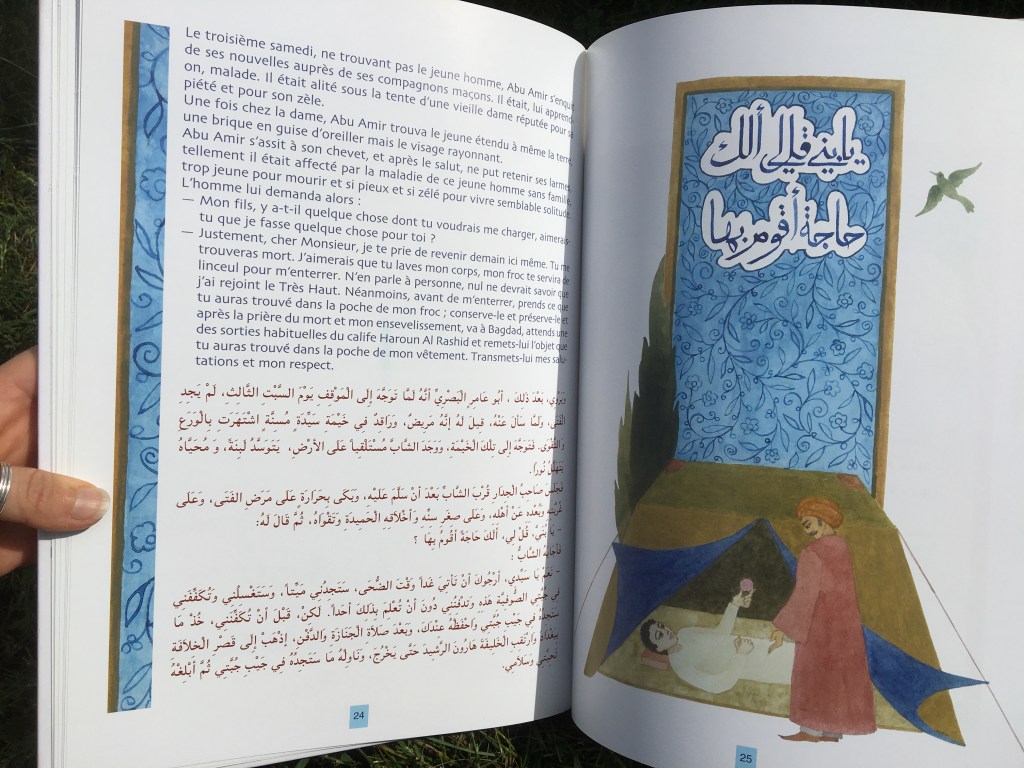 Le troisième samedi, ne trouvant pas le jeune homme, Abu Amir s'enquit
de ses nouvelles auprès de ses compagnons maçons. Il était, lui apprend-
on, malade. Il était alité sous la tente d'une vieille dame réputée pour sa
piété et pour son zèle.
Une fois chez la dame, Abu Amir trouva le jeune étendu à même la terre,
une brique en guise d'oreiller mais le visage rayonnant.
Abu Amir s'assit à son chevet, et après le salut, ne put retenir ses larmes
tellement il était affecté par la maladie de ce jeune homme sans famille,
trop jeune pour mourir et si pieux et si zélé pour vivre semblable solitude.
L'homme lui demanda alors :
— Mon fils, y a-t-il quelque chose dont tu voudrais me charger, aimerais-
tu que je fasse quelque chose pour toi ?
— Justement, cher Monsieur, je te prie de revenir demain ici même. Tu me
trouveras mort. J'aimerais que tu laves mon corps, mon froc te servira de
linceul pour m'enterrer. N'en parle à personne, nul ne devrait savoir que
j'ai rejoint le Très Haut. Néanmoins, avant de m'enterrer, prends ce que
tu auras trouvé dans la poche de mon froc ; conserve-le et préserve-le et
après la prière du mort et mon ensevelissement, va à Bagdad, attends une
des sorties habituelles du calife Haroun Al Rashid et remets-lui l'objet que
tu auras trouvé dans la poche de mon vêtement. Transmets-lui mes salu-
tations et mon respect.
وَيَرْوِي، بَعْدَ ذلِكَ ، أَبُو عَامِرِ الْبَصْرِيُّ أَنَّهُ لَمَّا تَوَجَّهَ إِلَى الْمَوْقِفِ يَوْمَ السَّبْتِ الثَّالِثِ، لَمْ يَجِدِ
الْفَتَى، وَلَمَّا سَأَلَ عَنْهُ، قِيلَ لَهُ إِنَّهُ مَرِيضٌ، وَرَاقِدٌ فِي خَيْمَةِ سَيِّدَةٍ مُسِنَّةٍ اشْتَهَرَتْ بِالْوَرَعِ
وَالتَّقْوَى. فَتَوَجَّهَ إِلَى تِلْكَ الْخَيْمَةِ، وَوَجَدَ الشَّابَّ مُسْتَلْقِياً عَلَى الأَرْضِ، يَتَوَسَّدُ لَبِنَةً، وَ مُحَيَّاهُ
يَتَهَلَّلُ نُوراً.
فَجَلَسَ صَاحِبُ الْجِدَارِ قُرْبَ الشَّابِّ بَعْدَ أَنْ سَلَّمَ عَلَيْهِ، وَبَكَى بِحَرَارَةٍ عَلَى مَرَضِ الْفَتَى، وَعَلَى
غُرْبَتِهِ وَبُعْدِهِ عَنْ أَهْلِهِ، وَعَلَى صِغَرِ سِنِّهِ وَأَخْلَاقِهِ الْحَمِيدَةِ وَتَقْوَاهُ، ثُمَّ قَالَ لَهُ:
- يَا بُنَيَّ، قُلْ لِي، أَلَكَ حَاجَةٌ أَقُومُ بِهَا ؟
فَأَجَابَهُ الشَّابُّ :
- نَعَمْ يَا سَيِّدِي، أَرْجُوكَ أَنْ تَأْتِيَ غَداً وَقْتَ الضُّحَى، سَتَجِدُنِي مَيِّتاً، وَسَتَغْسِلُنِي وَتُكَفِّنُنِي
فِي جُبَّتِي الصُّوفِيَّةِ هَذِهِ وَتَدْفِنُنِي دُونَ أَنْ تُعْلِمَ بِذَلِكَ أَحَداً. لَكِنْ، قَبْلَ أَنْ تُكَفِّنَنِي، خُذْ مَا
سَتَجِدُهُ فِي جَيْبِ جُبَّتِي وَاحْفَظْهُ عِنْدَكَ، وَبَعْدَ صَلَاةِ الْجَنَازَةِ وَالدَّفْنِ، إِذْهَبْ إِلَى قَصْرِ الْخِلَافَةِ
بِبَغْدَادَ وَارْتَقِبِ الْخَلِيفَةَ هَارُونَ الرَّشِيدَ حَتَّى يَخْرُجَ، وَنَاوِلْهُ مَا سَتَجِدُهُ فِي جَيْبِ جُبَّتِي ثُمَّ أَبْلِغْهُ
تَحِيَّتِي وَسَلَامِي.
24
يا بني قل لي ألك
حاجة أقوم بها
25